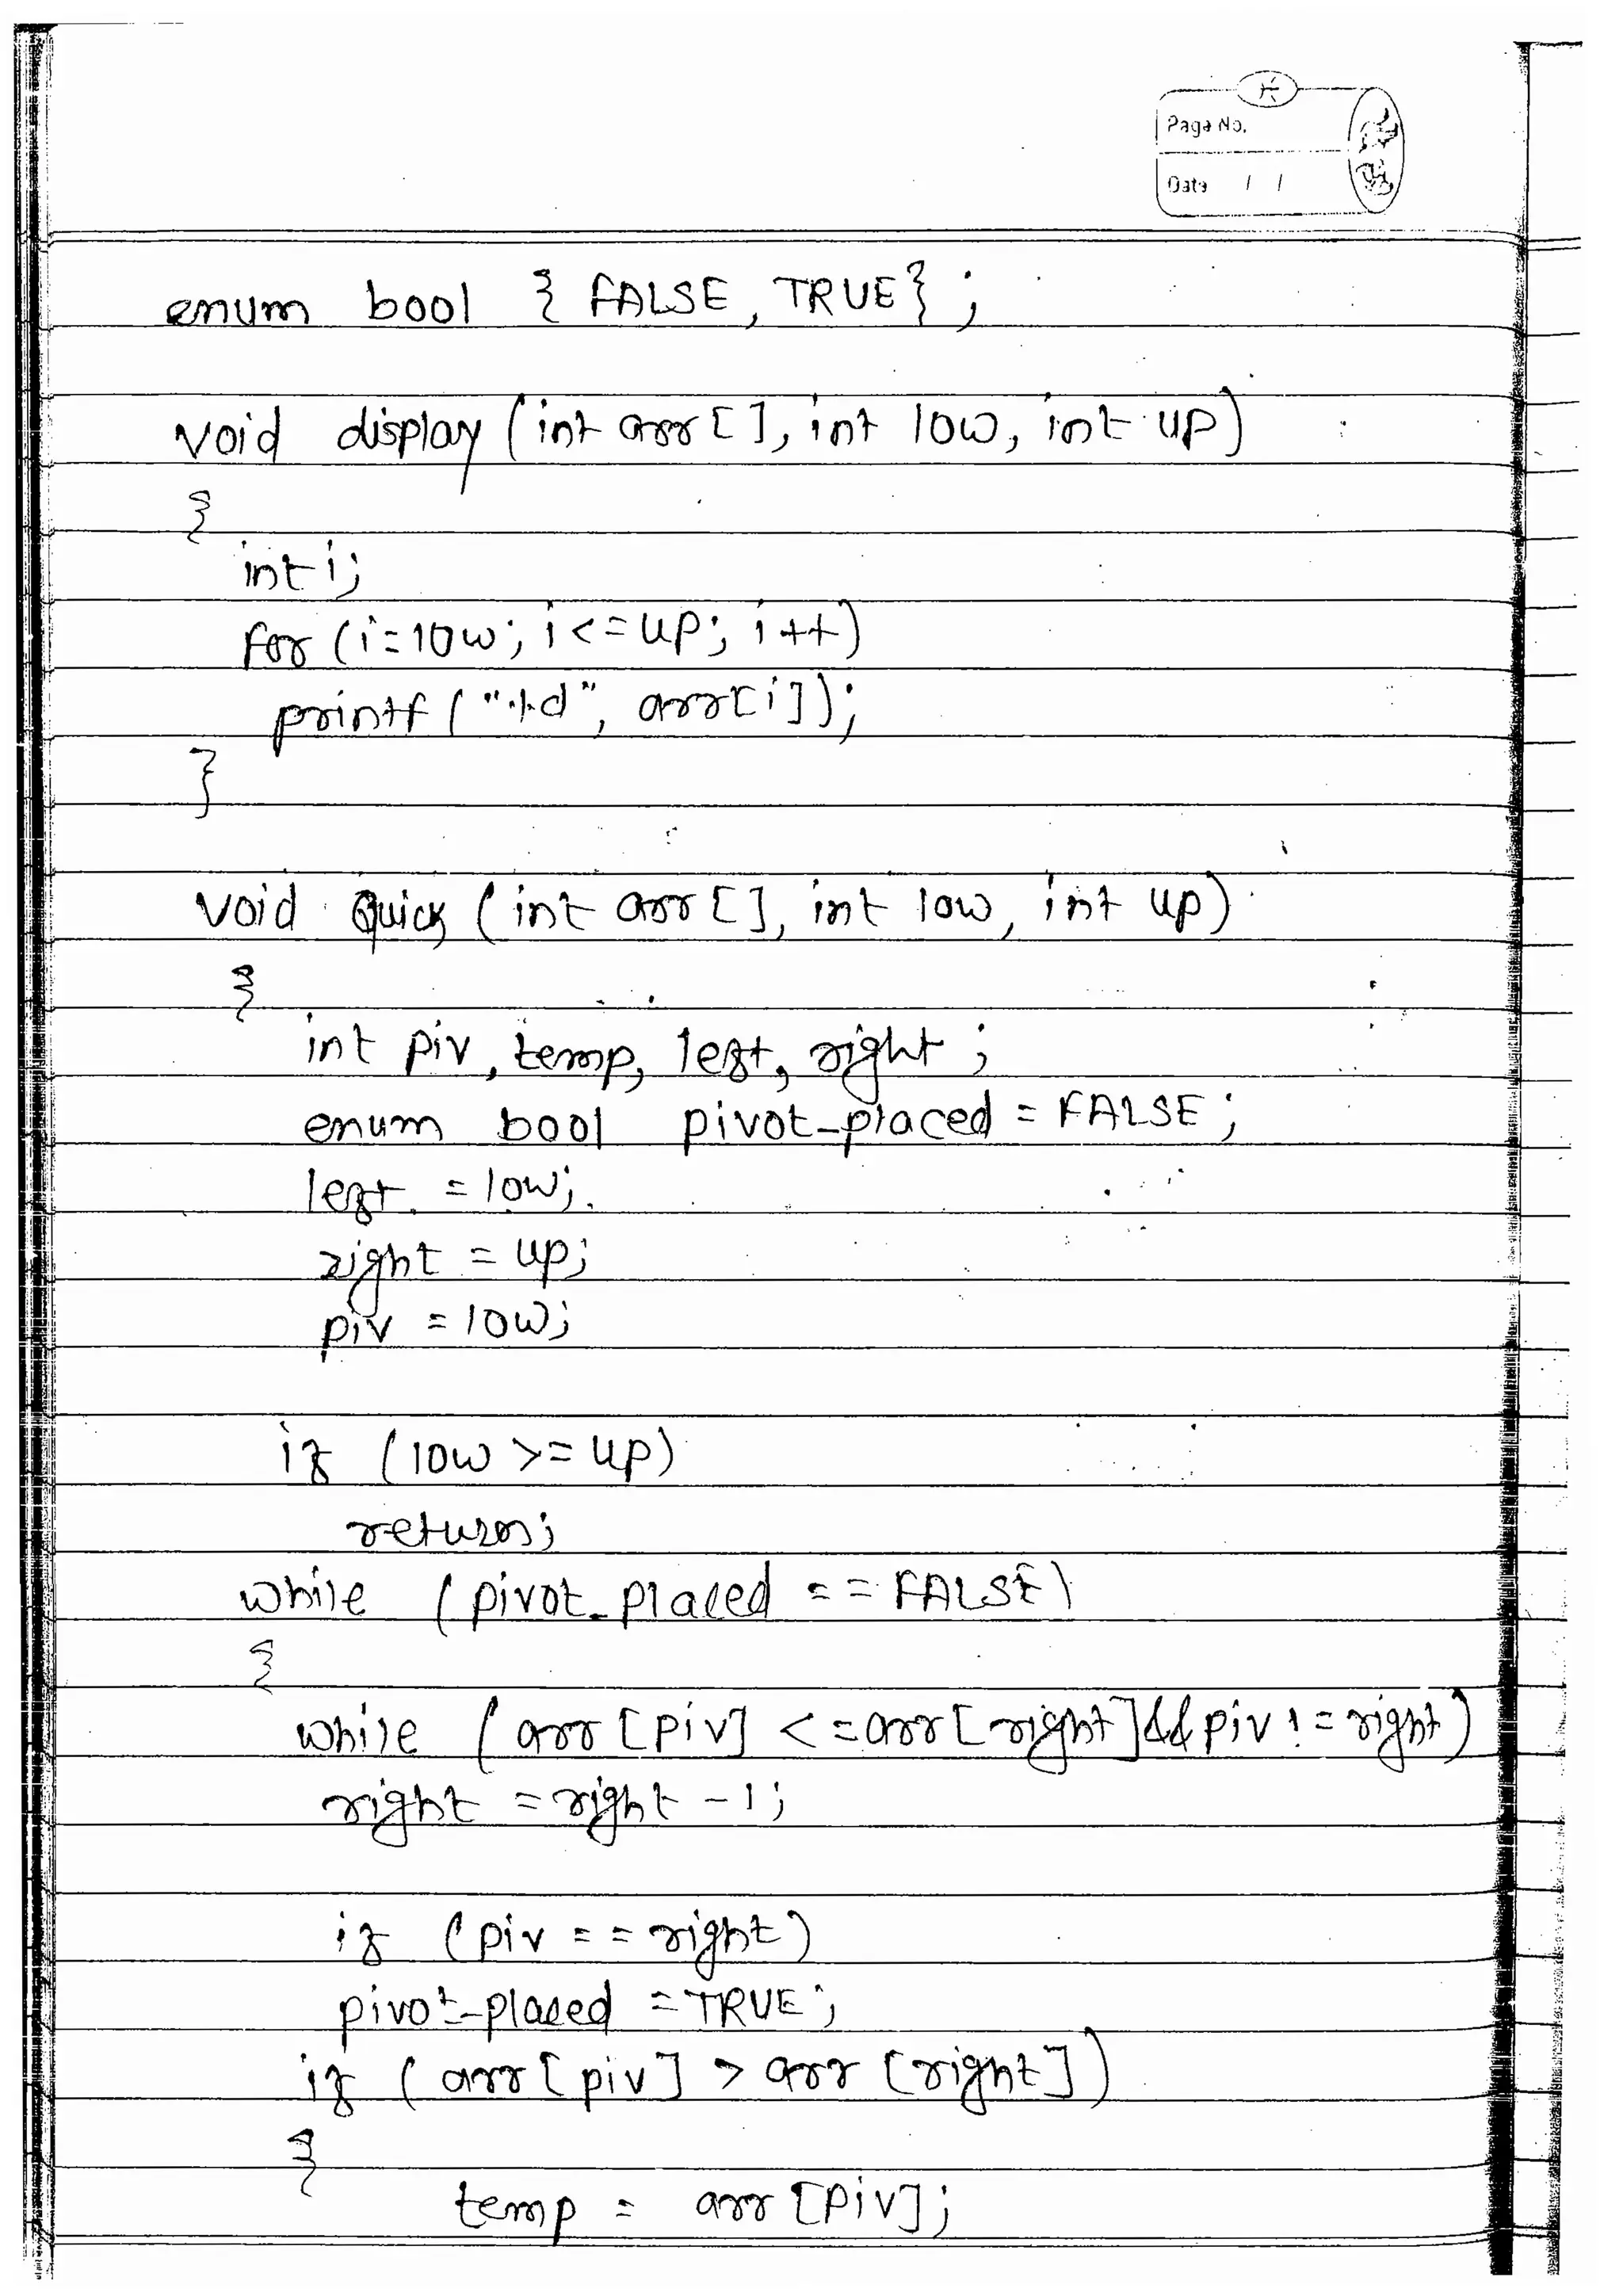 Page No.
Date / /
enum bool { FALSE, TRUE};
void display (int arr[], int low, int up)
{
int i;
for (i=low; i<=up; i++)
printf ("%d", arr[i]);
}
void Quick (int arr[], int low, int up)
{
int piv, temp, left, right;
enum bool pivot_placed = FALSE;
left = low;
right = up;
piv = low;
if (low >= up)
return;
while (pivot_placed == FALSE)
{
while (arr[piv] <= arr[right] && piv != right)
right = right - 1;
if (piv == right)
pivot_placed = TRUE;
if (arr[piv] > arr[right])
{
temp = arr[piv];